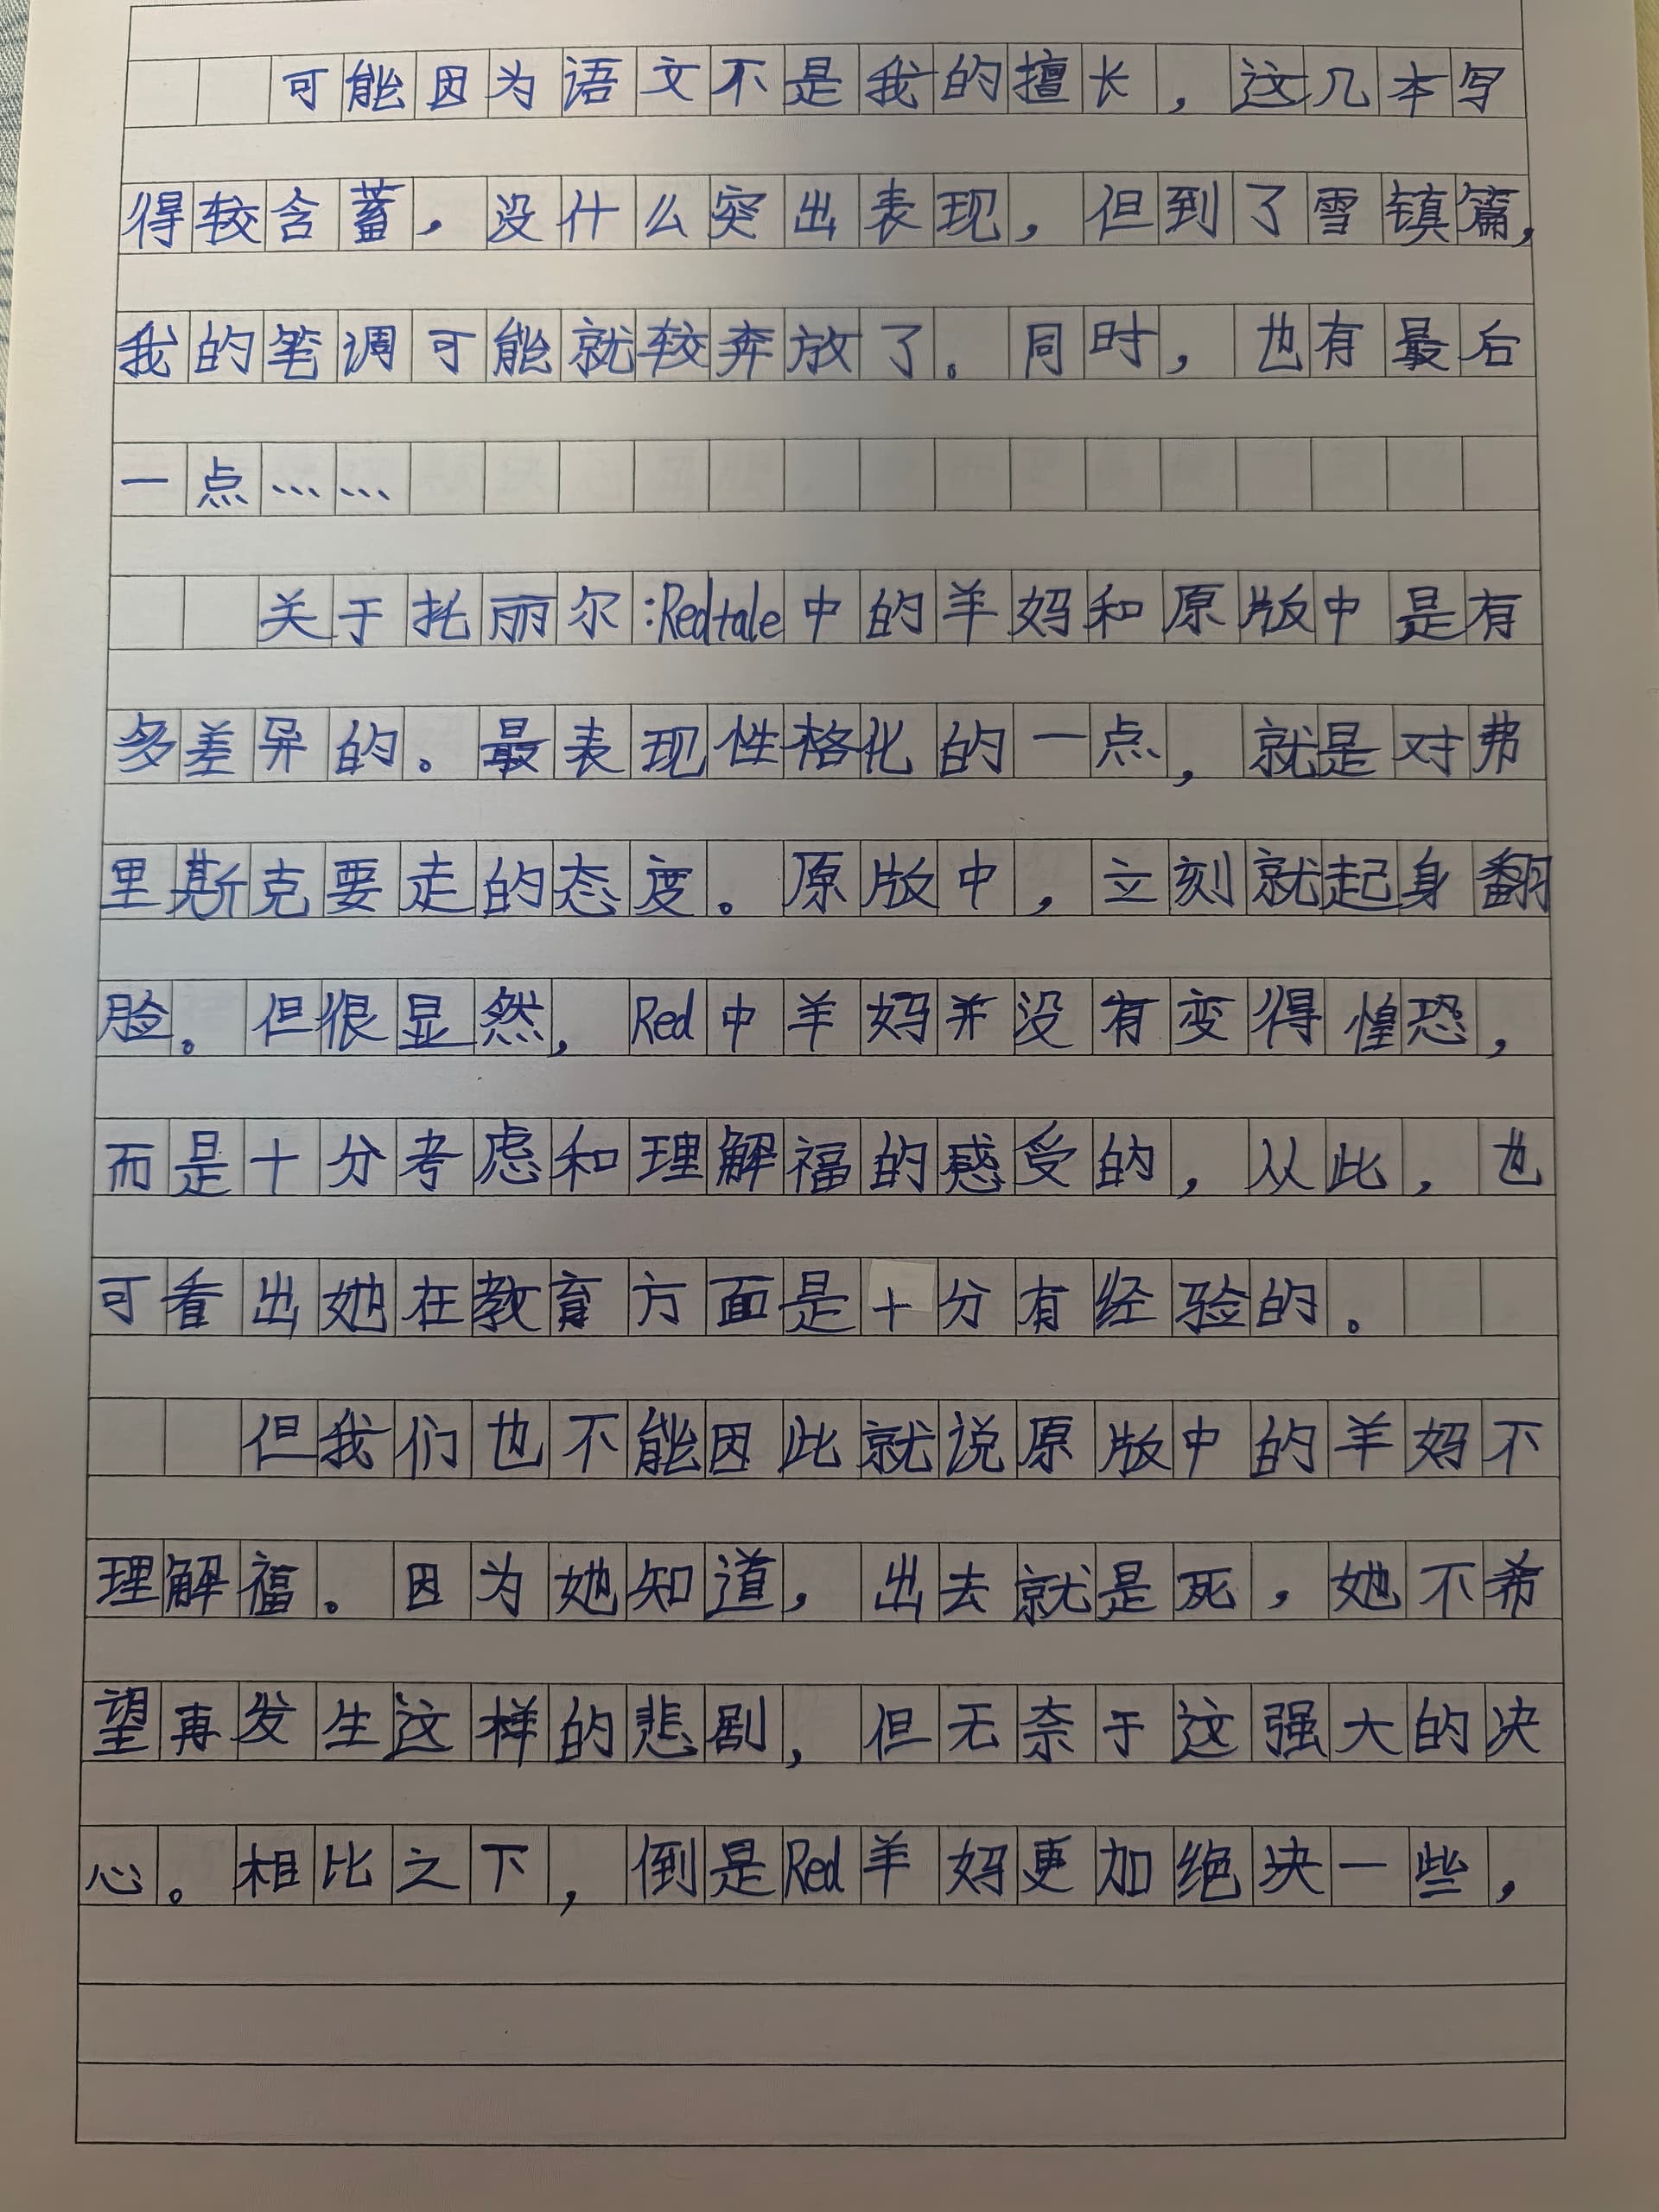 可能因为语文不是我的擅长，这几本写
得较含蓄，没什么突出表现，但到了雪镇篇，
我的笔调可能就较奔放了。同时，也有最后
一点……
关于托丽尔:Redtale中的羊妈和原版中是有
多差异的。最表现性格化的一点，就是对弗
里斯克要走的态度。原版中，立刻就起身翻
脸。但很显然，Red中羊妈并没有变得惶恐，
而是十分考虑和理解福的感受的，从此，也
可看出她在教育方面是十分有经验的。
但我们也不能因此就说原版中的羊妈不
理解福。因为她知道，出去就是死，她不希
望再发生这样的悲剧，但无奈于这强大的决
心。相比之下，倒是Red羊妈更加绝块一些，